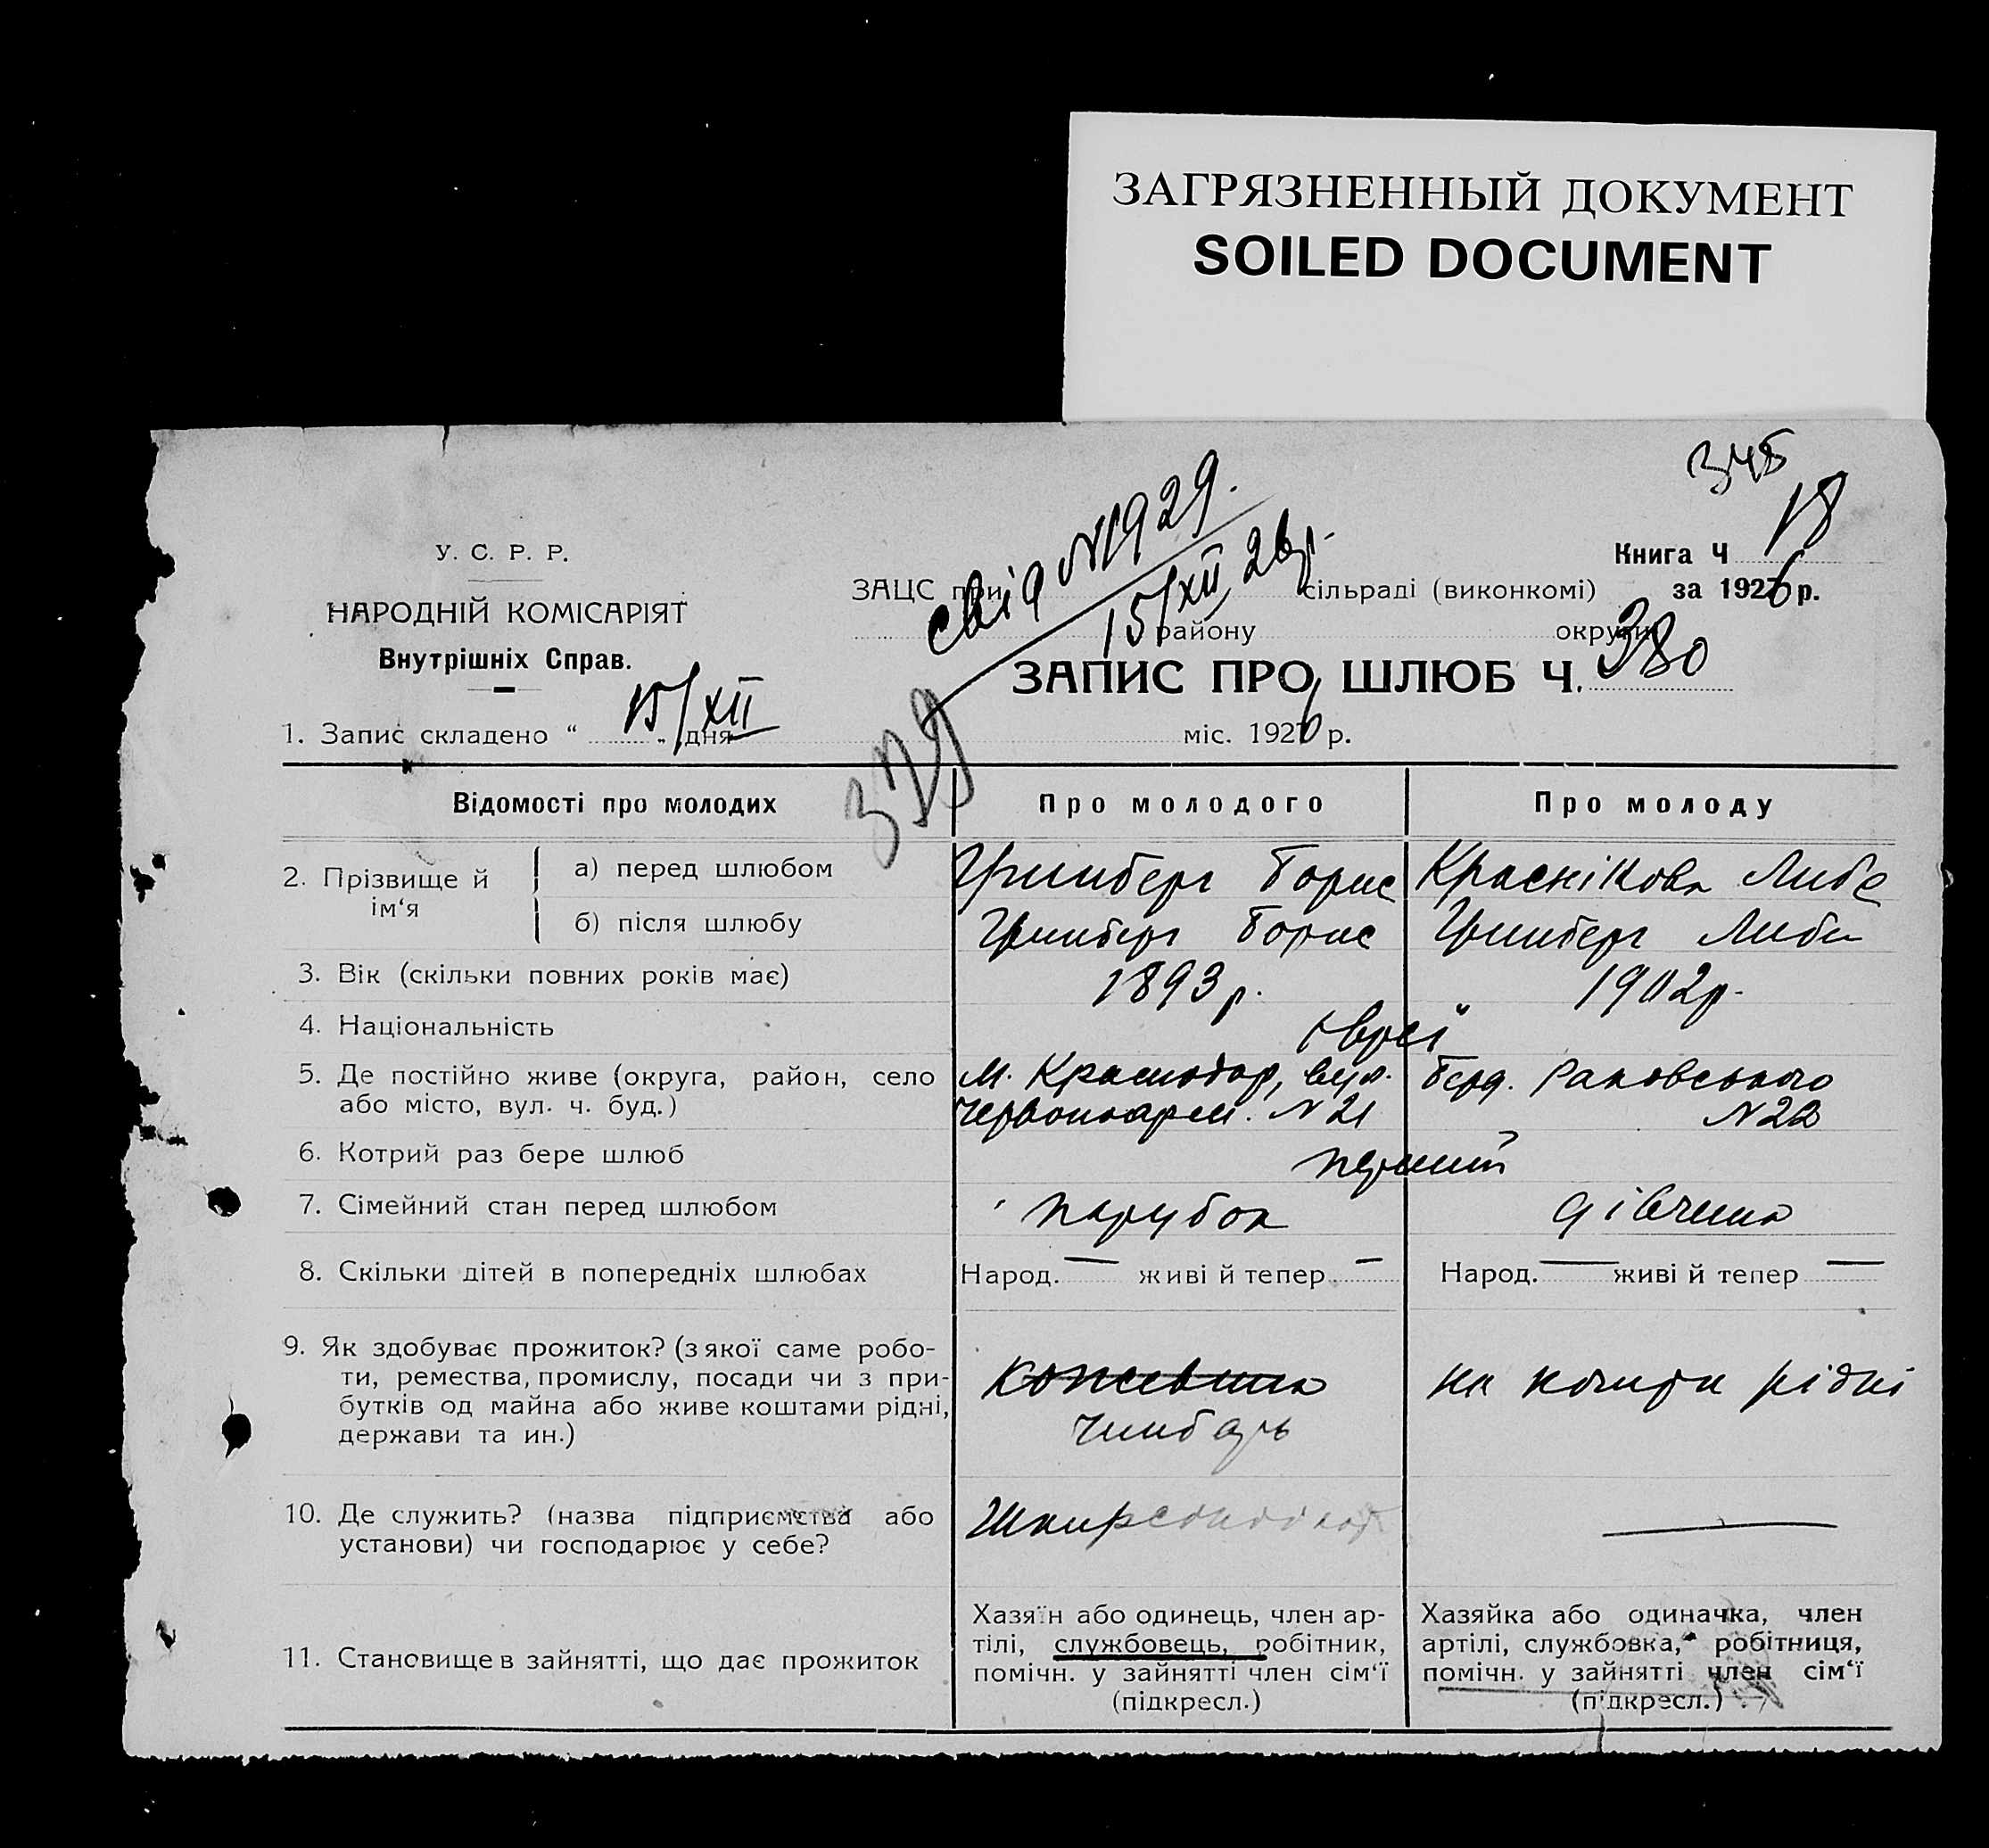 ЗАГРЯЗНЕННЫЙ ДОКУМЕНТ
SOILED DOCUMENT
345
У. С. Р. Р.
НАРОДНІЙ КОМІСАРІЯТ
Внутрішніх Справ.
свід N1929.
15/XII 26р.
Книга Ч 18
ЗАЦС при сільраді (виконкомі) за 1926 р.
району округи
ЗАПИС ПРО ШЛЮБ Ч. 380
379
1. Запис складено “ 15/XII „ дня міс. 1926 р.
Відомості про молодих Про молодого Про молоду
2. Прізвище й ім‘я
а) перед шлюбом Гринберг Борис Краснікова Либа
б) після шлюбу Гринберг Борис Гринберг Либа
3. Вік (скільки повних років має) 1893 р. 1902 р.
4. Національність Євреї
5. Де постійно живе (округа, район, село м. Краснодар, вул. Берд. Раковського
або місто, вул. ч. буд.) Червоноарм. N 21 N 22
6. Котрий раз бере шлюб перший
7. Сімейний стан перед шлюбом парубок дівчина
8. Скільки дітей в попередніх шлюбах Народ. — живі й тепер — Народ. — живі й тепер —
9. Як здобуває прожиток? (з якої саме робо-
ти, ремества, промислу, посади чи з при- кожевник на кошти рідні
бутків од майна або живе коштами рідні, чинбарь
держави та ин.)
10. Де служить? (назва підприємства або —
установи) чи господарює у себе?
11. Становище в зайнятті, що дає прожиток
Хазяїн або одинець, член ар-
тілі, службовець, робітник,
помічн. у зайнятті член сім‘ї
(підкресл.)
Хазяйка або одиначка, член
артілі, службовка, робітниця,
помічн. у зайнятті член сім‘ї
(підкресл.)